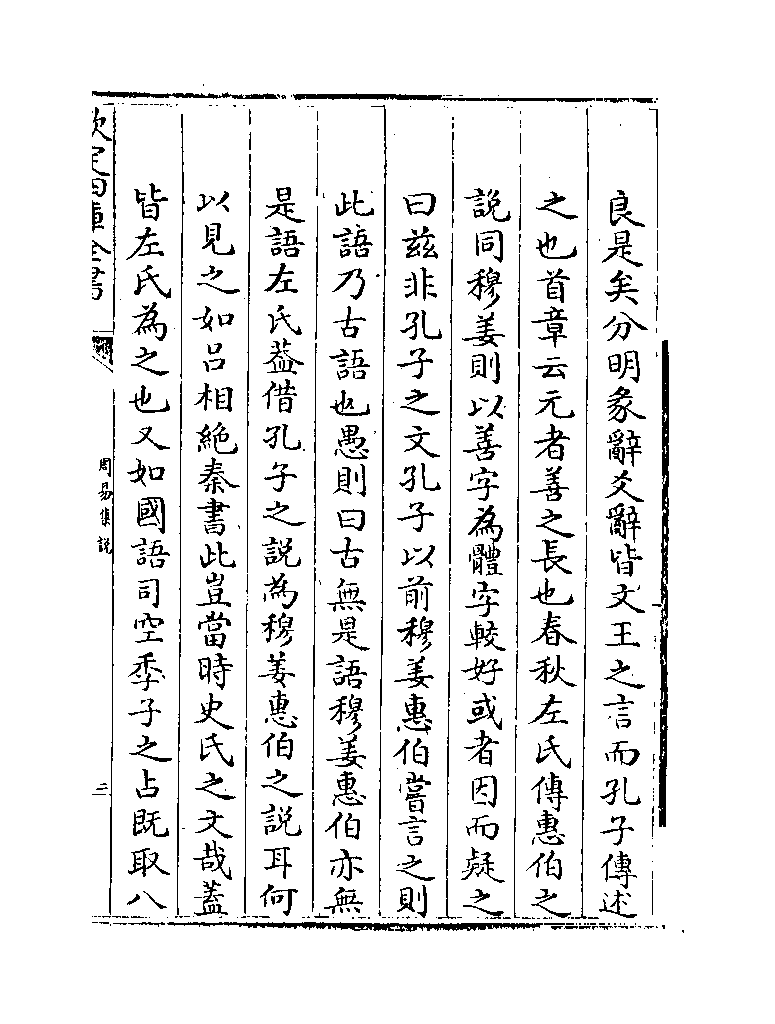 良是矣分明彖辭爻辭皆文王之言而孔子傳述
之也首章云元者善之長也春秋左氏傳惠伯之
説同穆姜則以善字為體字較好或者因而疑之
曰兹非孔子之文孔子以前穆姜惠伯嘗言之則
此語乃古語也愚則曰古無是語穆姜惠伯亦無
是語左氏葢借孔子之說為穆姜惠伯之說耳何
以見之如吕相絶秦書此豈當時史氏之文哉葢
皆左氏為之也又如國語司空季子之占既取八
欽定四庫全書
周易集說
三